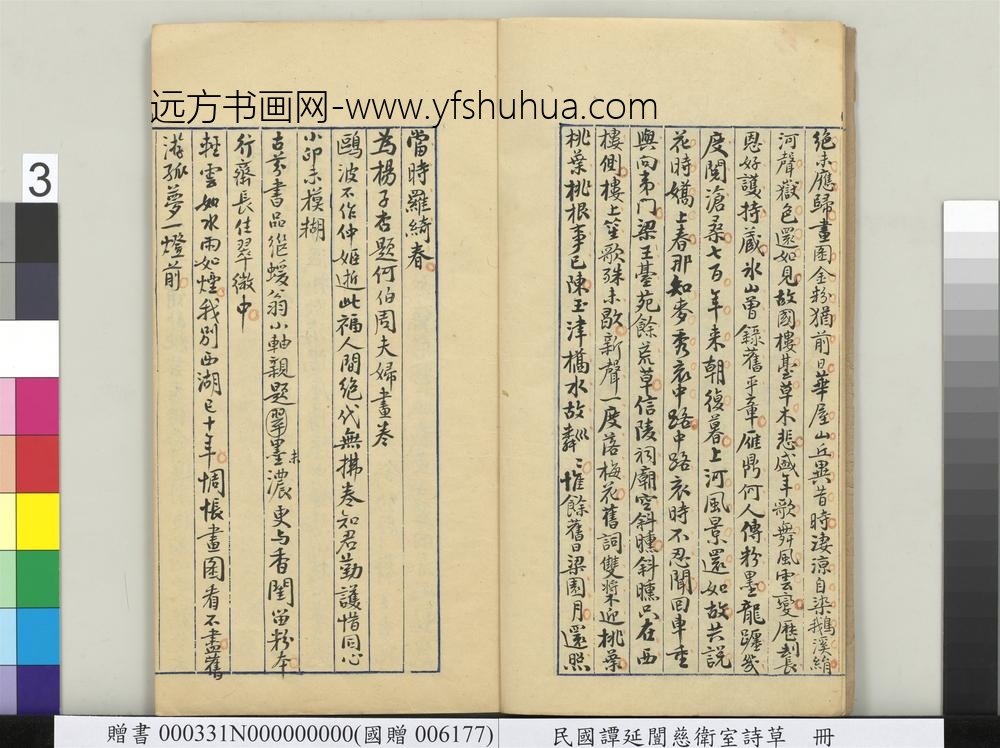 远方书画网-www.yfshuhua.com
絶未應歸畫圖金粉猶前日華屋山丘異昔時淒涼自染鵝溪絹
河聲嶽色還如見故國樓臺草木悲盛年歌舞風雲變歷刦長
恩好護持藏氷山曾錄舊平章雁鼎何人傳粉墨龍躔幾
度閲滄桑七百年来朝復暮上河風景還如故共說
花時嬌上春那知麥秀哀中路中路哀時不忍聞回車重
與向夷門梁王臺苑餘荒草信陵祠廟空斜曛斜曛只在西
樓側樓上笙歌殊未歇新聲一度落梅花舊詞雙槳迎桃葉
桃葉桃根事已陳玉津橋水故粼〻惟餘舊日梁園月還照
當時羅綺春
為楊子杏題何伯周夫婦畫卷
鷗波不作仲姬逝此福人間絶代無拂卷知君勤護惜同心
小印未模糊
古芬書品從蝯翁小軸親題翠墨未濃更与香閨留粉本
行齋長住翠微中
輕雲如水雨如煙我別西湖已十年惆悵畫圖看不盡舊
游孤夢一燈前
3
贈書 000331N000000000(國贈 006177)
民國譚延闓慈衛室詩草 冊